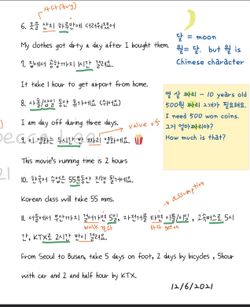 사다 (buy)
6. 옷을 산지 하루만에 더러워졌어
My clothes got dirty a day after I bought them.
7. 집에서 공항까지 1시간 걸려요.
It take 1 hour to get airport from home.
8. 사흘 동안
I am day off during three days.
value of
9. 이 영화는 두시간 반 짜리 영화에요.
This movie's running time is 2 hours
10. 한국어 수업은 55분동안 진행
Korean class will take 55 mins.
assumption
11. 서울에서 부산까지 걸어가면 5일, 자전거를 타면 이틀, 5시
간, KTX로 2시간 반이 걸려요.
From Seoul to Busan, take 5 days on foot, 2 day by bicycles, 5hour
with car and 2 and half hour by KTX.
12/6/2021
달 = moon
월 = 달. but 월 is
Chinese character
열 살 짜리 - 10 years old
500원 짜리 2개가 필요해요.
I need 500 won coins.
그거 얼마짜리야?
How much is that?